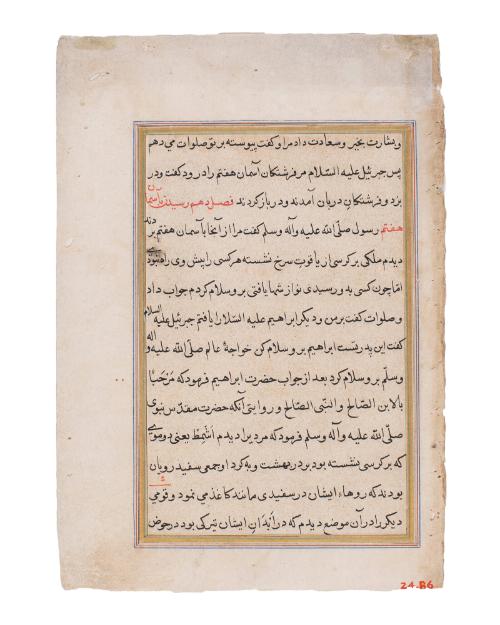 و بشارت بخیر و سعادت داد مرا و کفت پیوسته بر تو صلوات می دهم
پس جبرئیل علیه السّلام مر فرشتکان آسمان هفتم را درود کفت و در
بزد و فرشتکان دربان آمدند و در باز کردند فصل دهم رسیدن بآسمان
هفتم رسول صلّی الله علیه وآله وسلم کفت مرا از آنجا بآسمان هفتم بردند
دیدم ملکی بر کرسی از یاقوت سرخ نشسته هر کسی را پیش وی راه نبودی
امّا چون کسی به و رسیدی نواز شها یافتی بر و سلام کردم جواب داد
و صلوات کفت بر من و دیکر ابراهیم علیه السّلام را یافتم جبرئیل علیه السلام
کفت این پدر تست ابراهیم بر و سلام کن خواجهٔ عالم صلّی الله علیه وآله و
وسلّم بر و سلام کرد بعد از جواب حضرت ابراهیم فرمود که مرحبًا
بالابن الصّالح والنبی الصّالح و روایتی آنکه حضرت مقدّس نبوی
صلّی الله علیه وآله وسلم فرمود که مردیرا دیدم اَشْمط یعنی دوموی
که بر کرسی نشسته بود بر در بهشت و به کرد او جمعی سفید رویان
بودند که روهاء ایشان در سفیدی مانند کاغذ می نمود و قومی
دیکر را در آن موضع دیدم که در اَبْدانِ ایشان تیرکی بود در حوض
24.86